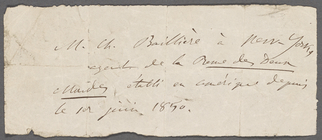 M. Ch. Baillière à New York
agent de la Revue des Deux
Mondes, établi en Amérique depuis
le 1er juin 1850.